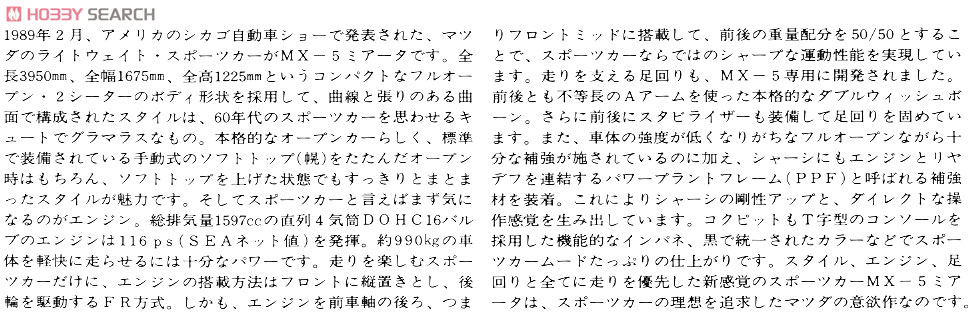 HOBBY SEARCH
1989年2月、アメリカのシカゴ自動車ショーで発表された、マツ
ダのライトウェイト・スポーツカーがMX－5ミアータです。全
長3950mm、全幅1675mm、全高1225mmというコンパクトなフルオー
プン・2シーターのボディ形状を採用して、曲線と張りのある曲
面で構成されたスタイルは、60年代のスポーツカーを思わせるキ
ュートでグラマラスなもの。本格的なオープンカーらしく、標準
で装備されている手動式のソフトトップ(幌)をたたんだオープン
時はもちろん、ソフトトップを上げた状態でもすっきりとまとま
ったスタイルが魅力です。そしてスポーツカーと言えばまず気に
なるのがエンジン。総排気量1597ccの直列4気筒DOHC16バル
ブのエンジンは116ps(SEAネット値)を発揮。約990kgの車
体を軽快に走らせるには十分なパワーです。走りを楽しむスポー
ツカーだけに、エンジンの搭載方法はフロントに縦置きとし、後
輪を駆動するFR方式。しかも、エンジンを前車軸の後ろ、つま
りフロントミッドに搭載して、前後の重量配分を50/50とするこ
とで、スポーツカーならではのシャープな運動性能を実現してい
ます。走りを支える足回りも、MX－5専用に開発されました。
前後とも不等長のAアームを使った本格的なダブルウィッシュボ
ーン。さらに前後にスタビライザーも装備して足回りを固めてい
ます。また、車体の強度が低くなりがちなフルオープンながら十
分な補強が施されているのに加え、シャーシにもエンジンとリヤ
デフを連結するパワープラントフレーム(PPF)と呼ばれる補強
材を装着。これによりシャーシの剛性アップと、ダイレクトな操
作感覚を生み出しています。コクピットもT字型のコンソールを
採用した機能的なインパネ、黒で統一されたカラーなどでスポー
ツカームードたっぷりの仕上がりです。スタイル、エンジン、足
回りと全てに走りを優先した新感覚のスポーツカーMX－5ミア
ータは、スポーツカーの理想を追求したマツダの意欲作なのです。